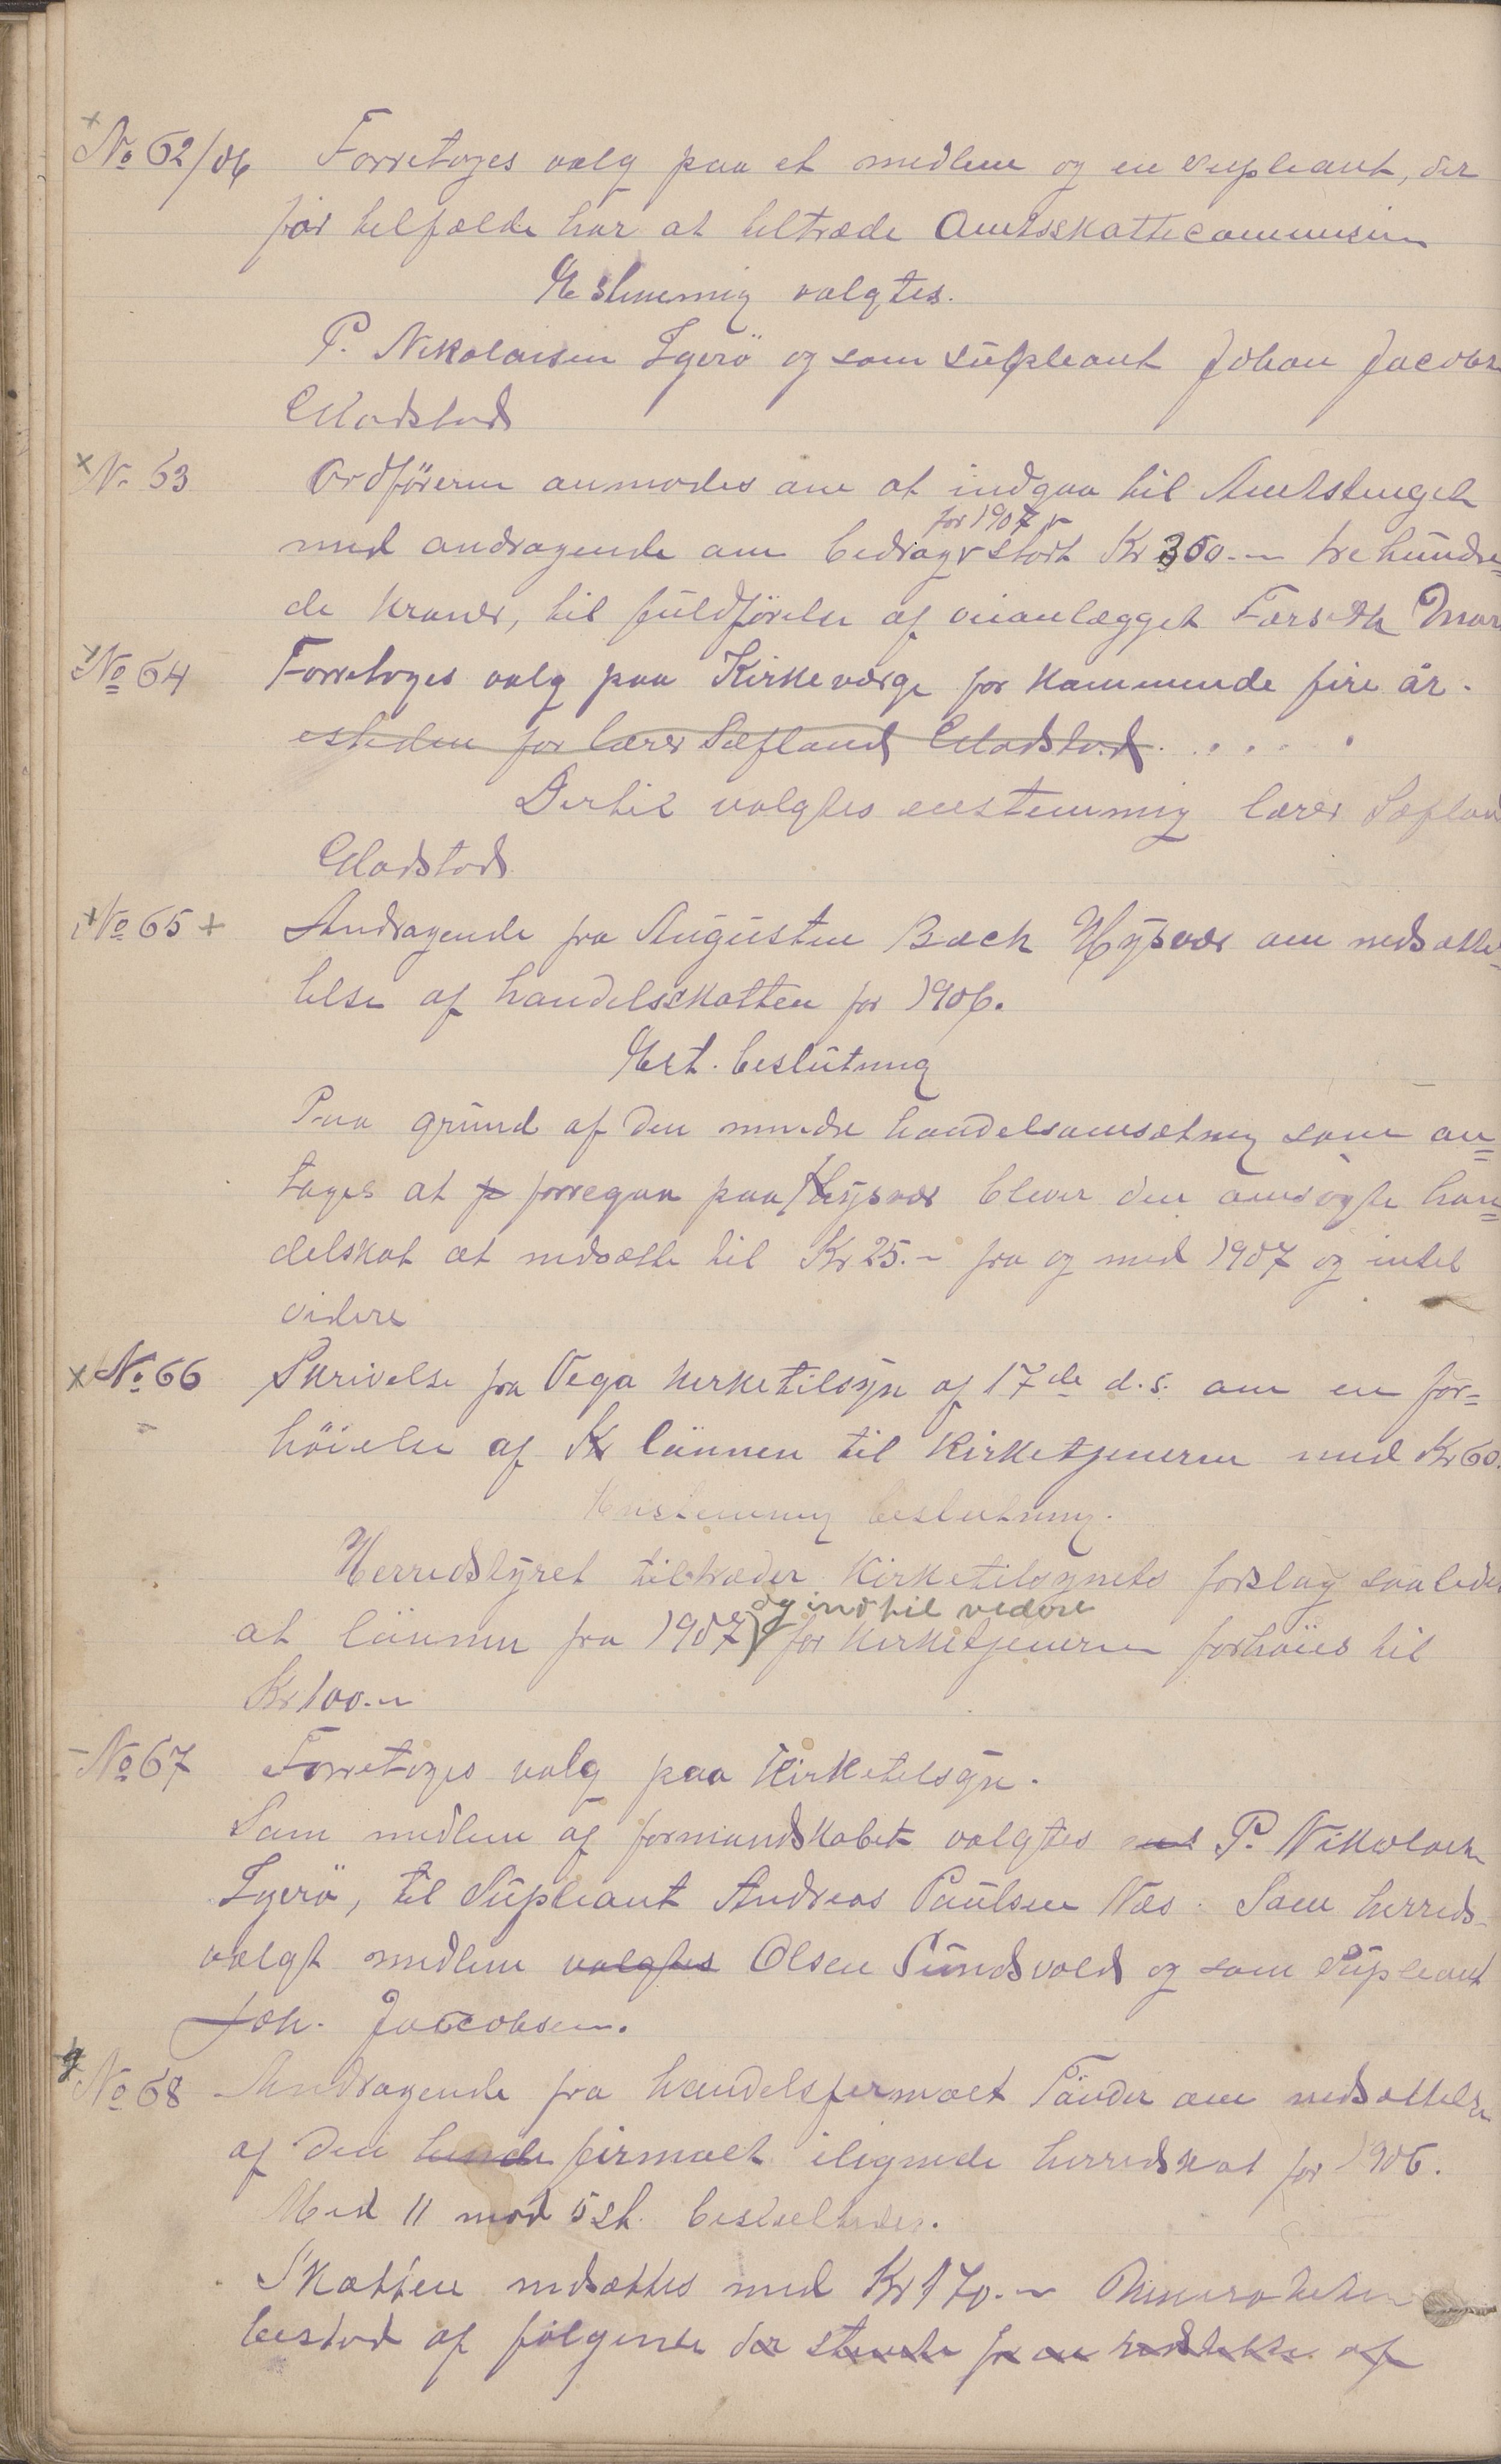 No 62/06 Forretoges valg paa et medlem og en supleant, der
for tilfælde har at tiltræde Amtsskattecommissin
Estemmig valgtes.
P. Nikolaisen Igerö og som supleant Johan Jacobs
Gladstad
No 63 Ordföreren anmodes om at indgaa til Amtstinget
for 1907
med andragende om bedrag stort Kr 300.- tre hundre=
de kroner, til fuldförelse af veianlægget Færseth
No 64 Forretoges valg paa Kirkeværge for kommende fire år.
isteden for lærer Sæfland Gladstad . . . . .
Dertil valgtes enstemmig lærer Sæflan
Gladstad
No 65 Andragende fra Augustin Bach Hysvær om nedsætte=
telse af handelsskatten for 1906.
Est. beslutning
Paa grund af den mindre handelsomsætning som an=
tages at foregaa paa Hysvær bliver den ansøgte han=
delskat at nedsætte til Kr 25.- fra og med 1907 og intil
videre
No 66 Skrivelse fra Vega kirketilsyn af 17de d.s. om en for=
höielse af Kr lönnen til Kirketjeneren med Kr 60.
Enstemmig beslutning.
Herredstyret tiltræder Kirketilsynets forslag saaledes
og indtil videre
at lönnen fra 1907 for kirketjeneren forhöies til
Kr 100.-
No 67 Forretoges valg paa Kirketilsyn.
Som medlem af formandskabet valgtes P. Nikolais
Igerö, til Supleant Andreas Paulsen Næs. Som herreds-
valgt medlem valgtes Olsen Sundsvold og som Supleant
Joh. Jacobsen.
No 68 Andragende fra handelsfirmaet om nedsættelse
af den firmaet ilignede herredskat for 1906.
Med 11 mod 5 st. besluttedes.
Skatten nedsættes med Kr 170.- Minoriteten
bestod af fölgende der stemte for en nedsættelse af